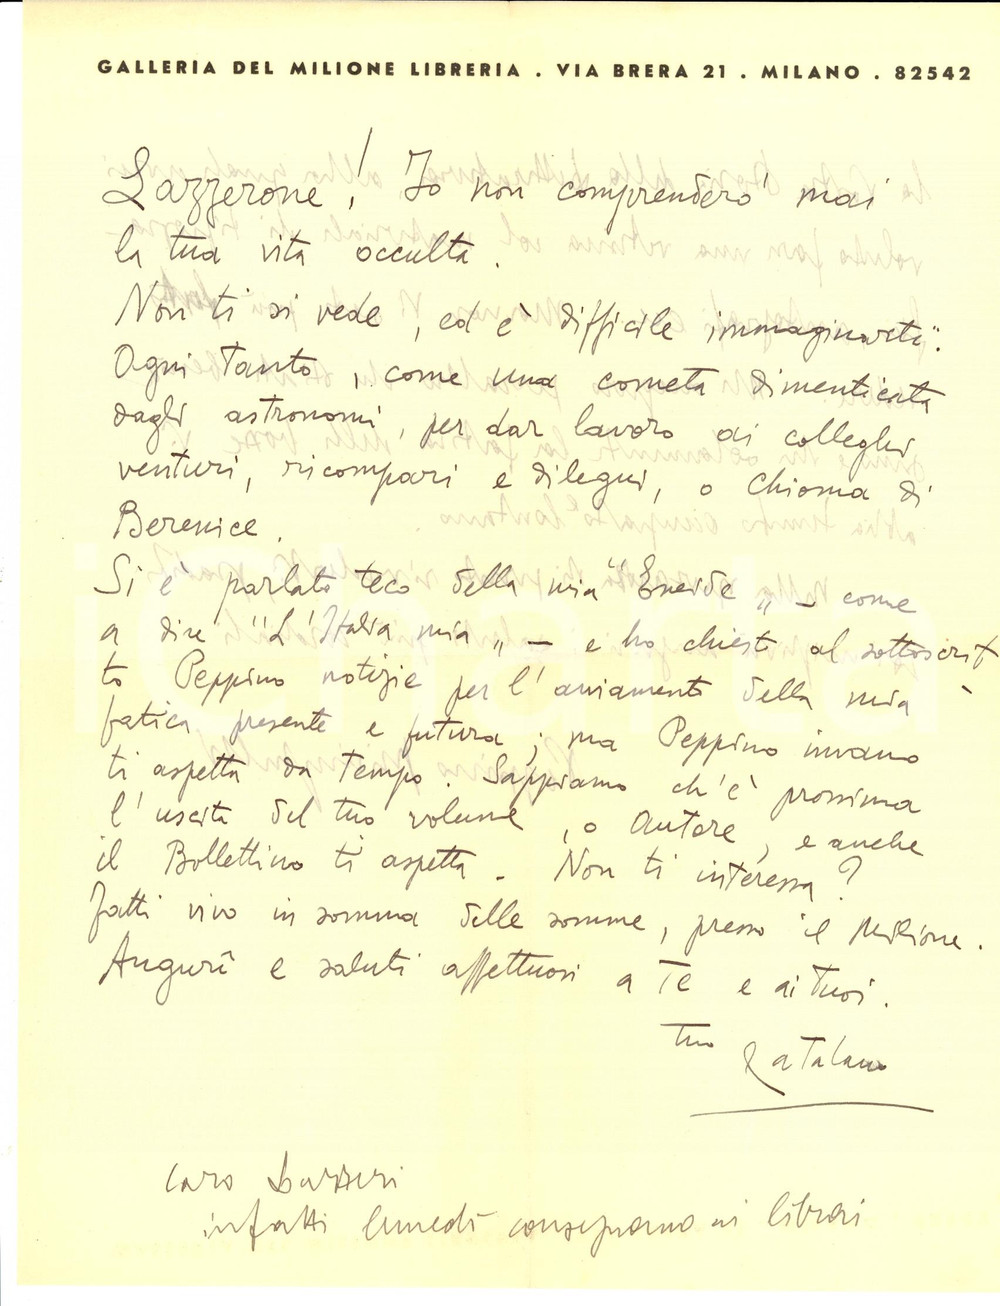 GALLERIA DEL MILIONE LIBRERIA . VIA BRERA 21 . MILANO . 82542
Lazzerone! Io non comprenderò mai
la tua vita occulta.
Non ti si vede, ed è difficile immaginarti.
Ogni tanto, come una cometa dimenticata
dagli astronomi, per dar lavoro ai colleghi
venturi, ricompari e dilegui, o Chioma di
Berenice.
Si è parlato teco della mia "Eneide" – come
a dire "L'Italia mia" – e ho chiesto al sottoscrit
to Peppino notizie per l'aviamento della mia
fatica presente e futura; ma Peppino invano
ti aspetta da tempo. Sappiamo ch'è prossima
l'uscita del tuo volume, o Autore, e anche
il Bollettino ti aspetta. Non ti interessa?
Fatti vivo in somma delle somme, presso il Milione.
Augurî e saluti affettuosi a Te e ai tuoi.
tuo
Caro
infatti lunedì consegnamo ai librai